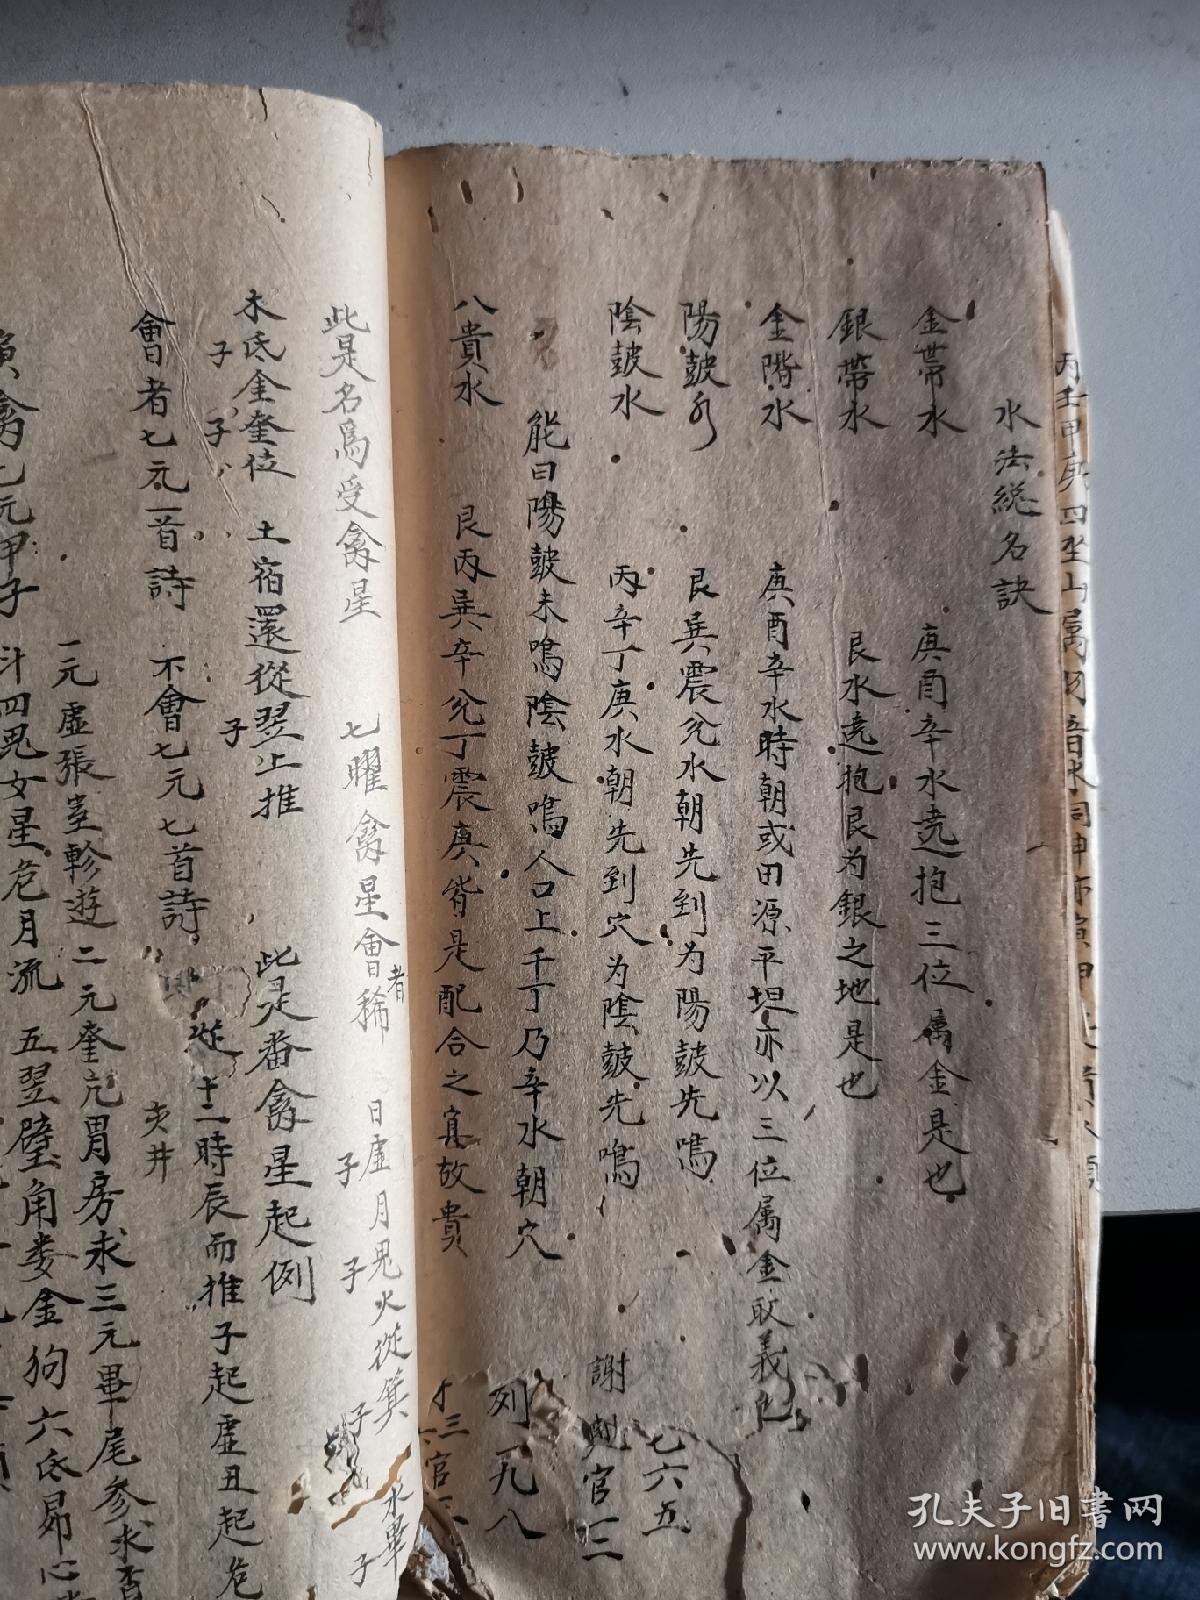 丙壬甲庚四坐山属
水法総名訣
金帶水 庚酉辛水遶抱三位属金是也
銀帶水 艮水遶抱艮为銀之地是也
金階水 庚酉辛水時朝或田源平坦亦以三位属金取義也
陽皷水 艮巽震兊水朝先到为陽皷先鳴
陰皷水 丙辛丁庚水朝先到穴为陰皷先鳴
七六五
謝 官二三
能曰陽皷未鳴陰皷鳴人口上千丁乃辛水朝穴
列九八
八貴水 艮丙巽辛兊丁震庚皆是配合之宜故貴
三官
此是名為受禽星 七曜禽星會者稀 日虛月鬼火從箕 水畢
子 子 子 子
木氐金奎位 土宿還從翌上推 此是番禽星起例
子 子 子
會者七元一首詩 不會七元七首詩 從十二時辰而推子起虛丑起危
亥井
一元虛張室軫遊二元奎亢胃房求三元畢尾參
演禽七元甲子 斗四鬼女星危月流 五翌璧角娄金狗六氐昴心
孔夫子旧书网
www.kongfz.com